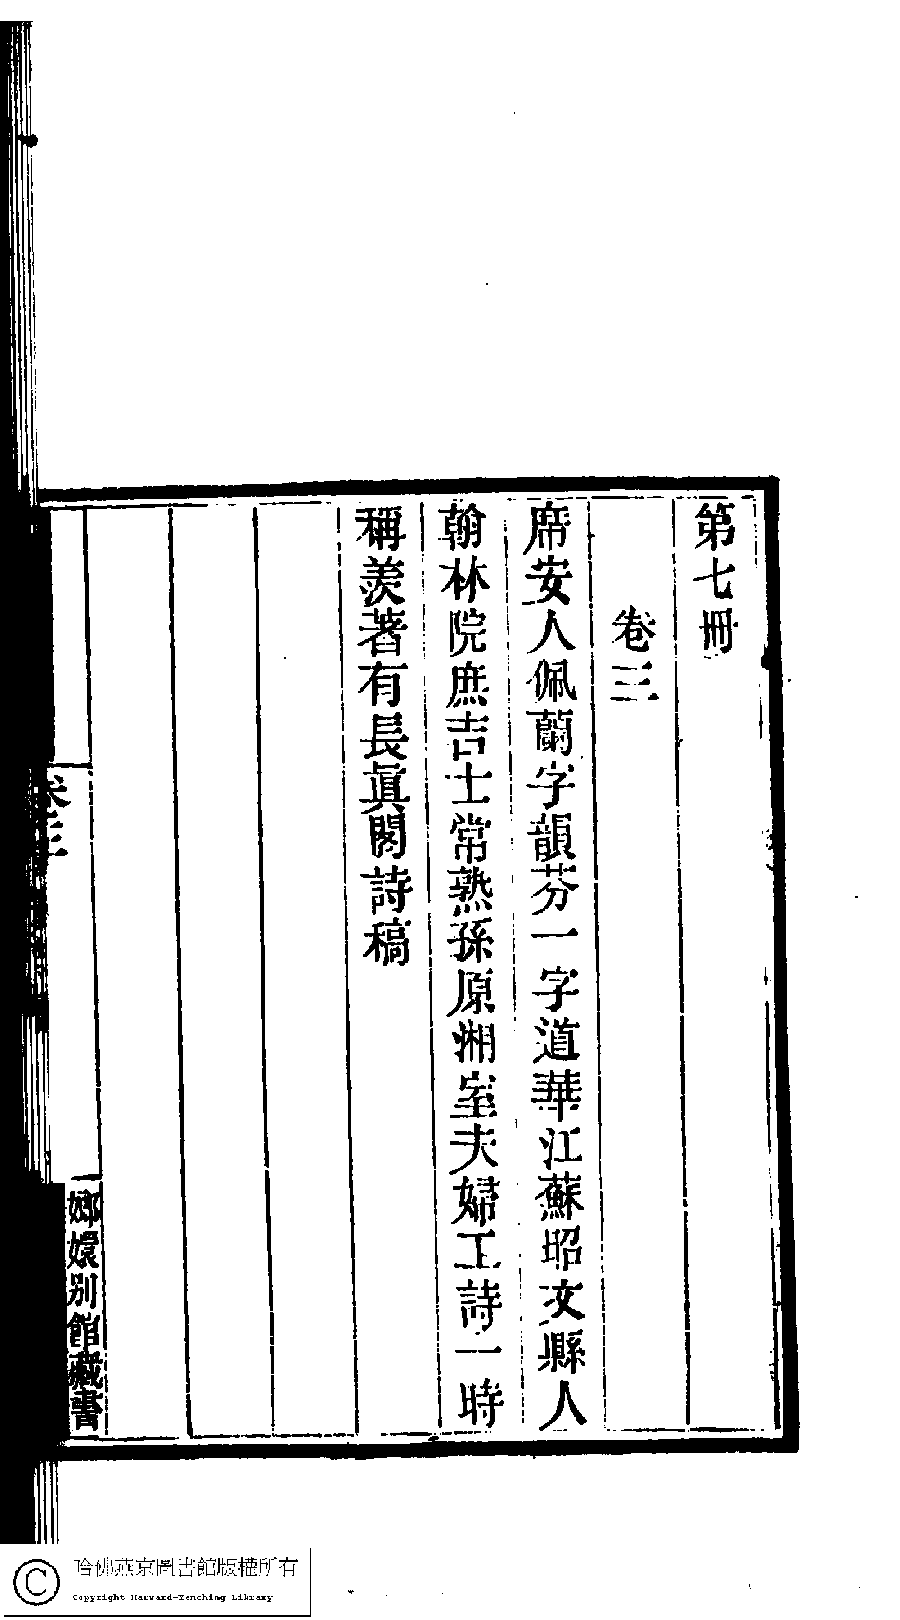 第七冊
卷三
席安人佩蘭字韻芬一字道華江蘇昭文縣人
翰林院庶吉士常熟孫原湘室夫婦工詩一時
稱羨著有長眞閣詩稿
卷三
嫏嬛別館藏書
哈佛燕京圖書館版權所有
Copyright Harvard-Yenching Library